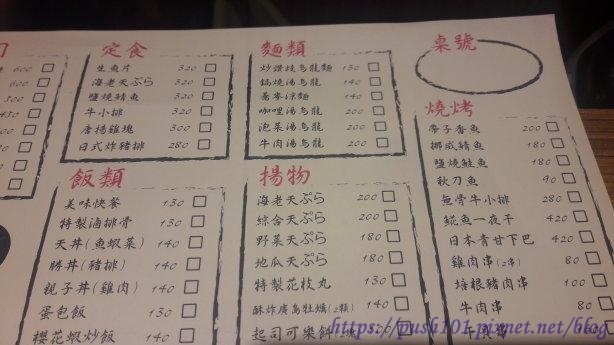 600
600
500
450
定食
生魚片 320
海老天ぷら 320
鹽燒鯖魚 320
牛小排 320
唐揚雞塊 300
日式炸豬排 280
麵類
炒讚岐烏龍麵 130
鍋燒湯烏龍 140
蕎麥涼麵 140
咖哩湯烏龍 200
泡菜湯烏龍 200
牛肉湯烏龍 200
桌號
飯類
美味快餐 130
特製滷排骨 130
天丼(魚蝦菜) 140
勝丼(豬排) 140
親子丼(雞肉) 140
蛋包飯 130
櫻花蝦炒飯 140
揚物
海老天ぷら 200
綜合天ぷら 200
野菜天ぷら 180
地瓜天ぷら 180
特製花枝丸 130
酥炸廣島牡蠣(2顆) 140
起司可樂餅
燒烤
帶子香魚 200
挪威鯖魚 180
鹽燒鮭魚 180
秋刀魚 90
無骨牛小排 280
鯤魚一夜干 420
日本青甘下巴 420
雞肉串(2串) 80
培根豬肉串 100
牛肉串 80
https://push101.pixnet.net/blog